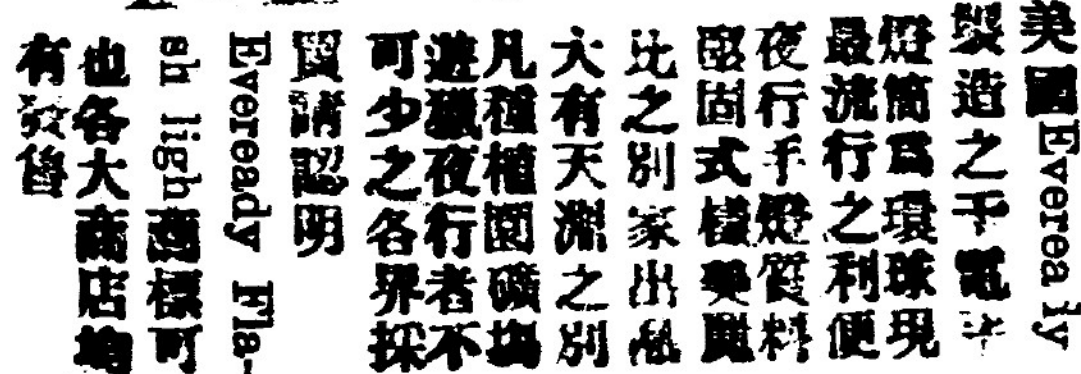 美國Eveready
製造之干電
燈筒爲環球現
最流行之利便
夜行手燈質料
固式樣美麗
比之別家出品
大有天淵之別
凡種植園礦場
遊獵夜行者不
可少之各界採
買請認明
Eveready Fla-
sh ligh商標可
也各大商店均
有發售